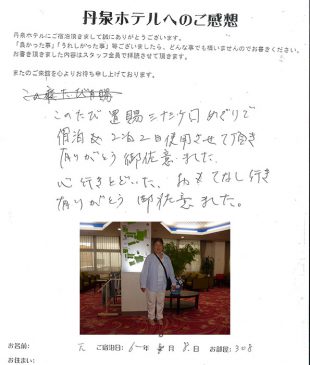 丹泉ホテルへのご感想
丹泉ホテルにご宿泊頂きまして誠にありがとうございます。
「良かった事」「うれしかった事」等ございましたら、どんな事でも構いませんのでお書きください。
お書き頂きました内容はスタッフ全員で拝読させて頂きます。
またのご来館を心よりお待ち申し上げております。
このたび置賜
このたび 置賜三十三ケ所めぐりで
宿泊を2泊2日使用させて頂き
有りがとう御佐意ました
心行きとどいた、おもてなし行き
有りがとう御佐意ました。
お名前: 様 ご宿泊日: 6年 月 8日 お部屋: 308
お住まい: